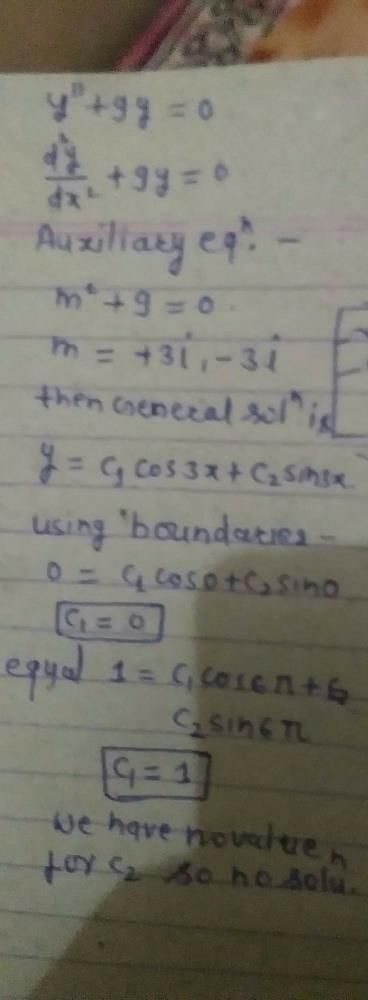 y'' + 9y = 0
d²y/dx² + 9y = 0
Auxiliary eqⁿ. -
m² + 9 = 0.
m = +3i, -3i
then General solⁿ is
y = C₁ cos3x + C₂ sin3x
using boundaries -
0 = C₁ cos0 + C₂ sin0
C₁ = 0
equal 1 = C₁ cos6π +
C₂ sin6π
C₁ = 1
we have no value
for C₂ so no soluⁿ.